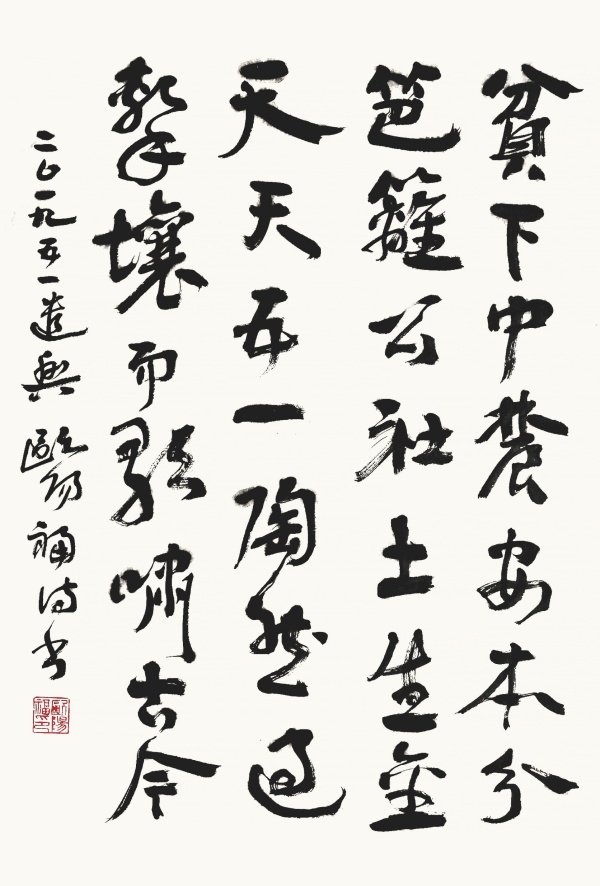 貧下中農安本分
笆籬公社土生金
天天五一陶然過
擊壤而歌嘯古今
二〇一九五一遣興 歐陽福詩书